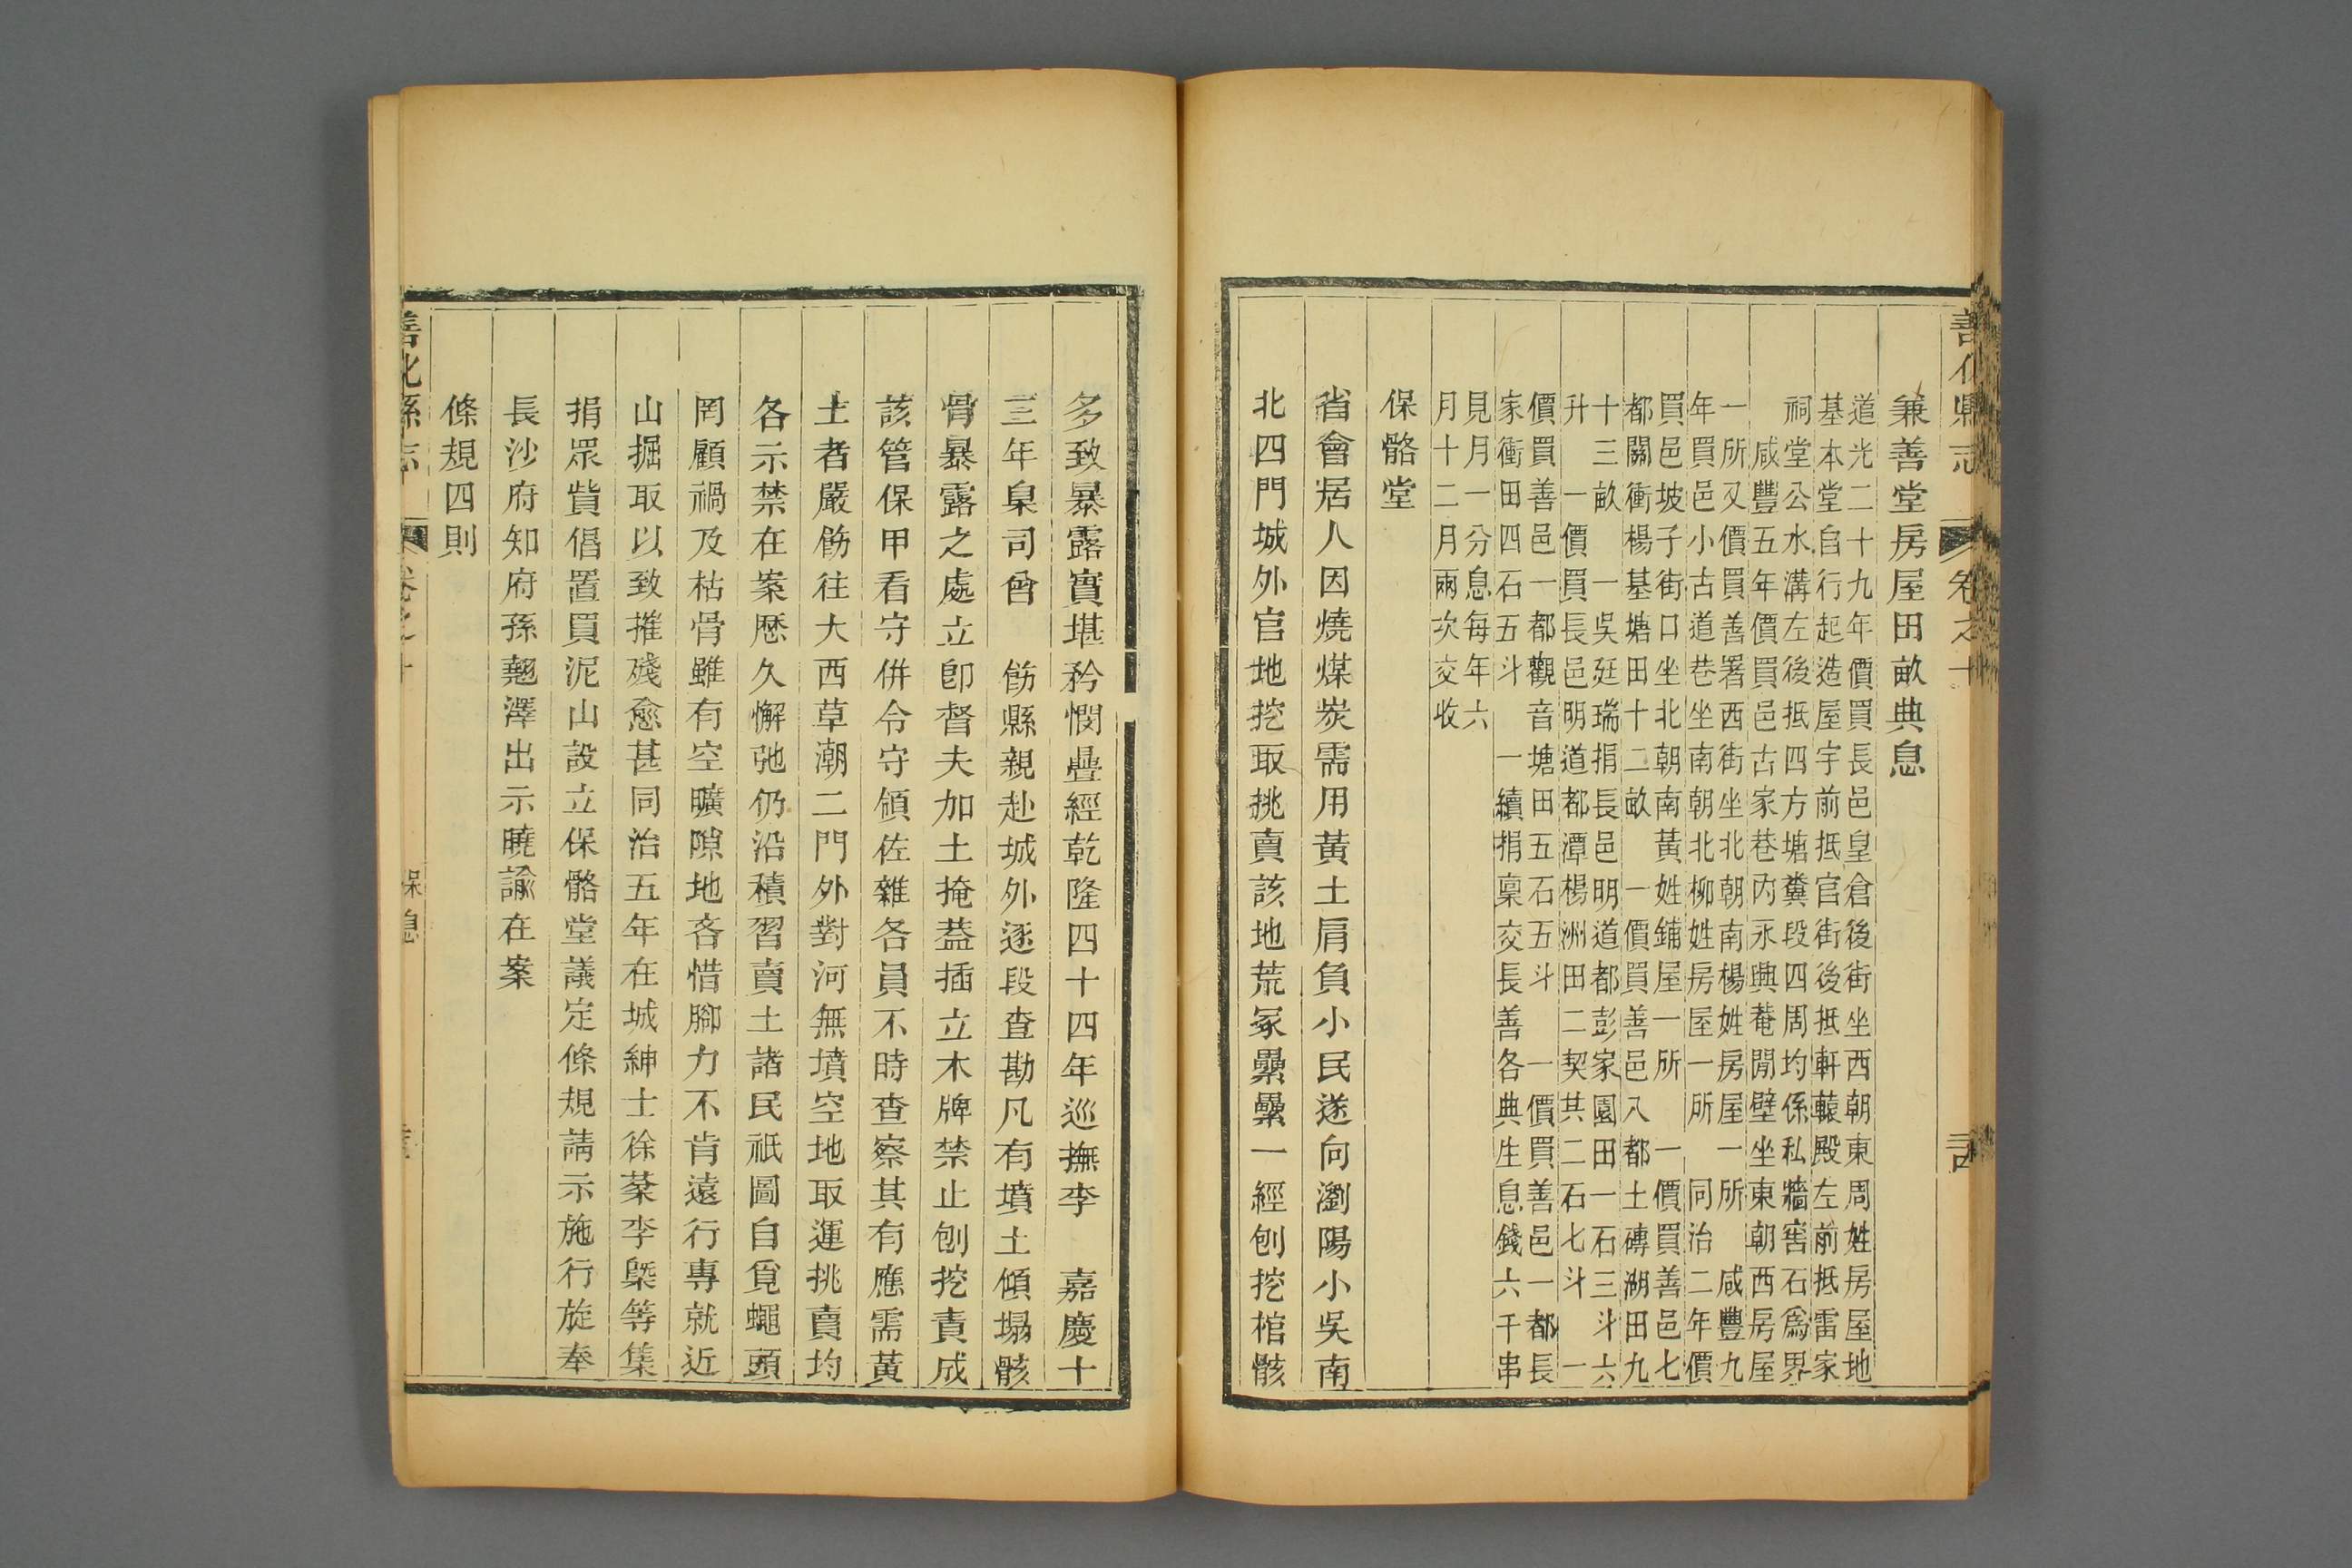 善化縣志 卷之十
兼善堂房屋田畝典息
道光二十九年價買長邑皇倉後街坐西朝東周姓房屋地
基本堂自行起造屋宇前抵官街後抵軒轅殿左前抵雷家
祠堂公水溝左後抵四方塘糞段四周均係私牆窖石爲界
咸豐五年價買邑古家巷內永興菴閒壁坐東朝西房屋
一所又價買善署西街坐北朝南楊姓房屋一所 咸豐九
年買邑小古道巷坐南朝北柳姓房屋一所 同治二年價
買邑坡子街口坐北朝南黃姓鋪屋一所 一價買善邑七
都關衝楊基塘田十二畝 一價買善邑八都土磚湖田九
十三畝 一吳廷瑞捐長邑明道都彭家園田一石三斗六
升 一價買長邑明道都潭楊洲田二契共二石七斗 一
價買善邑一都觀音塘田五石五斗 一價買善邑一都長
家衝田四石五斗 一續捐稟交長善各典生息錢六千串
見月一分息每年六
月十二月兩次交收
保骼堂
省會居人因燒煤炭需用黃土肩負小民遂向瀏陽小吳南
北四門城外官地挖取挑賣該地荒冢纍纍一經刨挖棺骸
多致暴露實堪矜憫疊經乾隆四十四年巡撫李 嘉慶十
三年臬司曾 飭縣親赴城外逐段查勘凡有墳土傾塌骸
骨暴露之處立卽督夫加土掩葢插立木牌禁止刨挖責成
該管保甲看守併令守領佐雜各員不時查察其有應需黃
土者嚴飭往大西草潮二門外對河無墳空地取運挑賣均
各示禁在案歷久懈弛仍沿積習賣土諸民祇圖自覓蠅頭
罔顧禍及枯骨雖有空曠隙地吝惜腳力不肯遠行專就近
山掘取以致摧殘愈甚同治五年在城紳士徐棻李㮣等集
捐眾貲倡置買泥山設立保骼堂議定條規請示施行旋奉
長沙府知府孫翹澤出示曉諭在案
條規四則
善化縣志 卷之十 保息